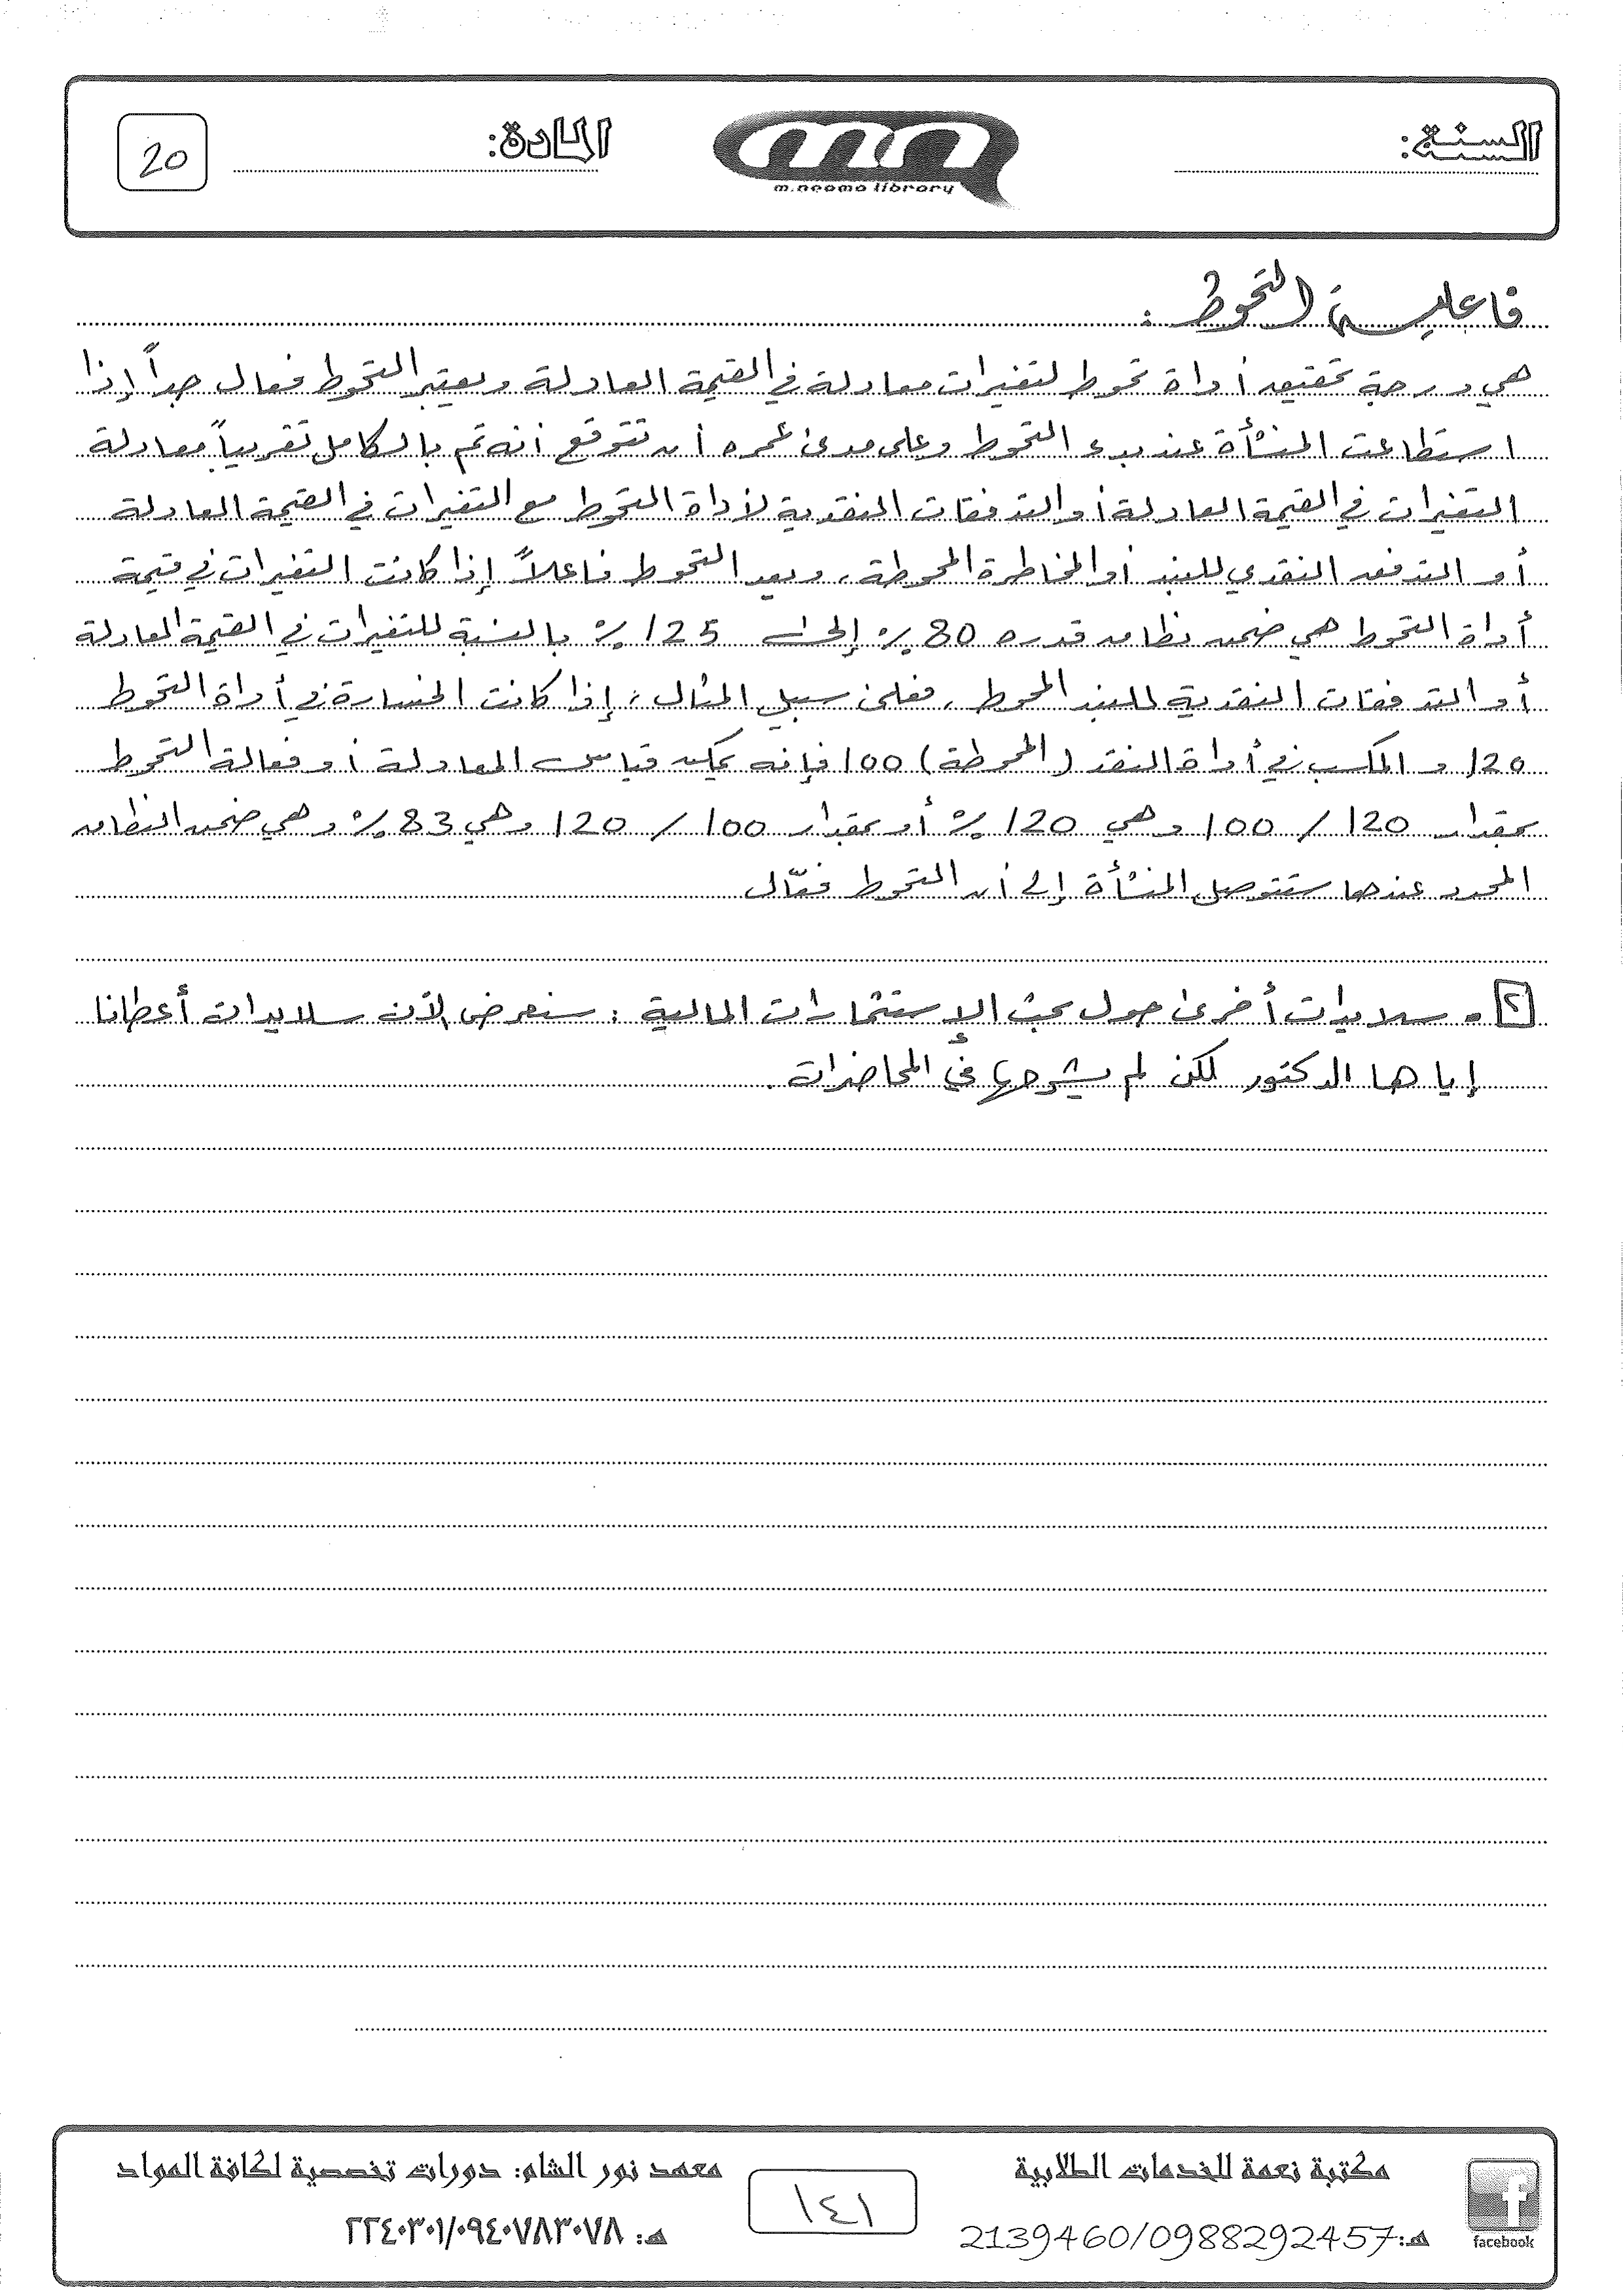 السنة:
m.neama library
المادة:
20
فاعلية التحوط :
هي درجة تحقيق أداة تحوط لتغيرات معادلة في القيمة العادلة ويعتبر التحوط فعال جداً إذا
استطاعت المنشأة عند بدء التحوط وعلى مدى عمره أن تتوقع أنه تم بالكامل تقريباً معادلة
التغيرات في القيمة العادلة أو التدفقات النقدية لأداة التحوط مع التغيرات في القيمة العادلة
أو التدفق النقدي للبند أو المخاطرة المحوطة، ويعد التحوط فاعلاً إذا كانت التغيرات في قيمة
أداة التحوط هي ضمن نطاق قدره 80 % إلى 125 % بالنسبة للتغيرات في القيمة العادلة
أو التدفقات النقدية للبند المحوط، فعلى سبيل المثال : إذا كانت الخسارة في أداة التحوط
120 و المكسب في أداة النقد (المحوطة) 100 فإنه يمكن قياس المعادلة أو فعالة التحوط
بمقدار 120 / 100 وهي 120 % أو بمقدار 100 / 120 وهي 83 % وهي ضمن النطاق
المحدد عندها ستتوصل المنشأة إلى أن التحوط فعّال
٢ . سلايدات أخرى حول بحث الإستثمارات المالية : سنعرض الآن سلايدات أعطانا
إياها الدكتور لكن لم يشرحها في المحاضرات .
facebook
مكتبة نعمة للخدمات الطلابية
هـ:2139460/0988292457
١٤١
معهد نور الشام: دورات تخصصية لكافة المواد
هـ: ٢٢٤٠٣٠١/٠٩٤٠٧٨٣٠٧٨